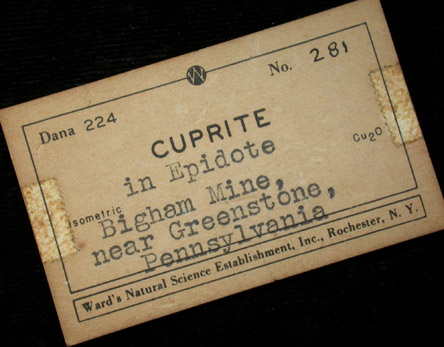 W
No. 281
Dana 224
CUPRITE
in Epidote
Cu2O
Isometric
Bigham Mine,
near Greenstone,
Pennsylvania
Ward's Natural Science Establishment, Inc., Rochester, N. Y.